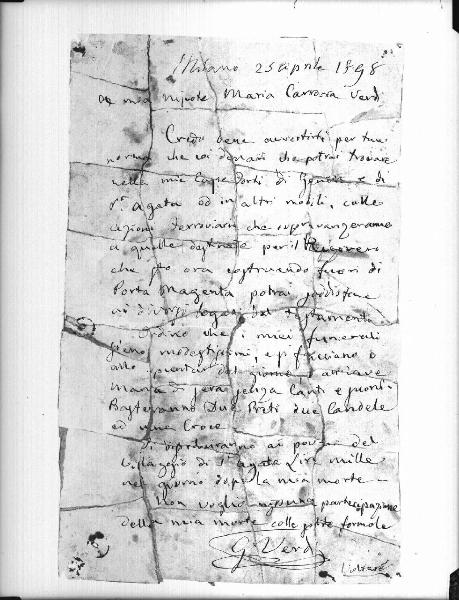 Milano 25 Aprile 1898
A mia nipote Maria Carrara Verdi
Credo bene avvertirti per tua
norma che coi denari che potrai trovare
nelle mie Casse forti di Genova e di
S.ª Agata od in altri mobili, colle
azioni ferroviarie che sopravanzeranno
a quelle destinate per il Ricovero
che sto ora costruendo fuori di
Porta Magenta potrai soddisfare
ai diversi legati del testamento
che i miei funerali
sieno modestissimi, e si facciano o
allo spuntar del giorno o all'Ave
Maria di sera senza Canti e suoni.
Basteranno Due Preti due Candele
ed una Croce
Si distribuiranno ai poveri del
Villaggio di S.t Agata Lire mille
nel giorno dopo la mia morte —
Non voglio nissuna partecipazione
della mia morte colle solite formole
G. Verdi